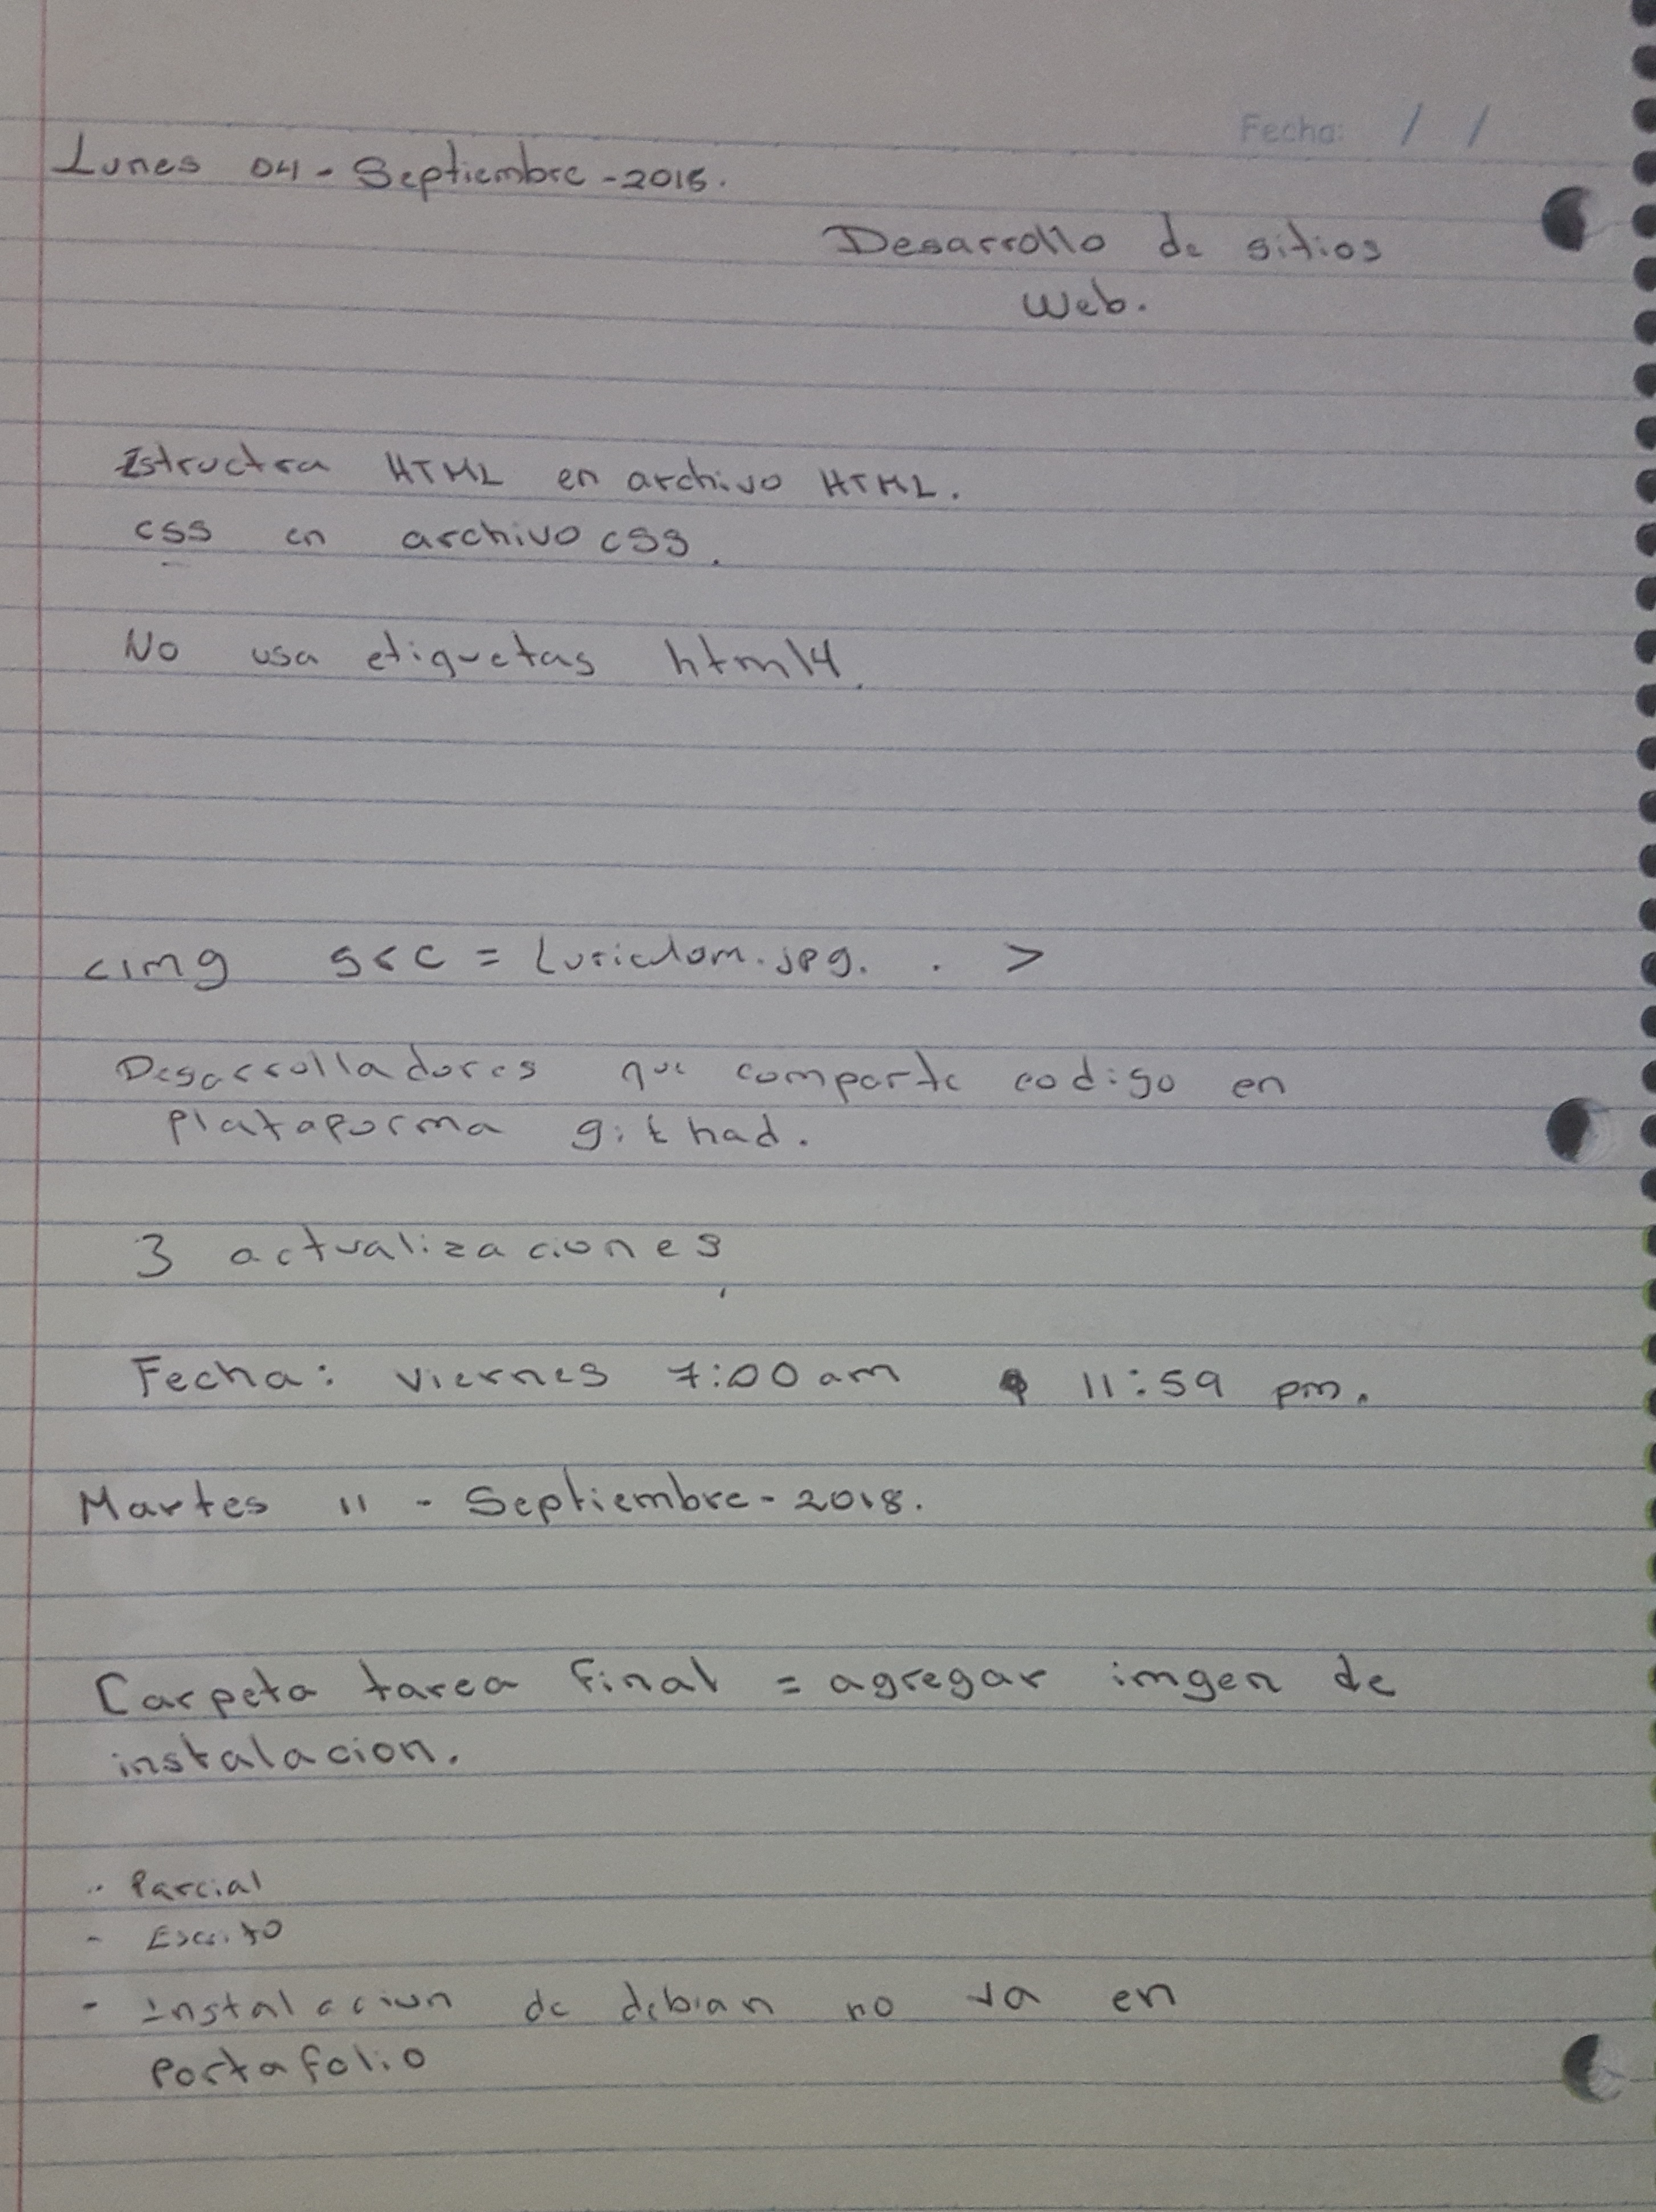 Fecha: / /
Lunes 04 - Septiembre - 2018.
Desarrollo de sitios
Web.
Estructra HTML en archivo HTML.
css en archivo css.
No usa etiquetas html4.
<img src = .jpg. . >
Desarrolladores que comparte codigo en
plataforma githad.
3 actualizaciones
Fecha: viernes 7:00 am 11:59 pm.
Martes 11 - Septiembre - 2018.
Carpeta tarea final = agregar imgen de
instalacion.
- Parcial
- Escrito
- Instalacion de debian no va en
Portafolio